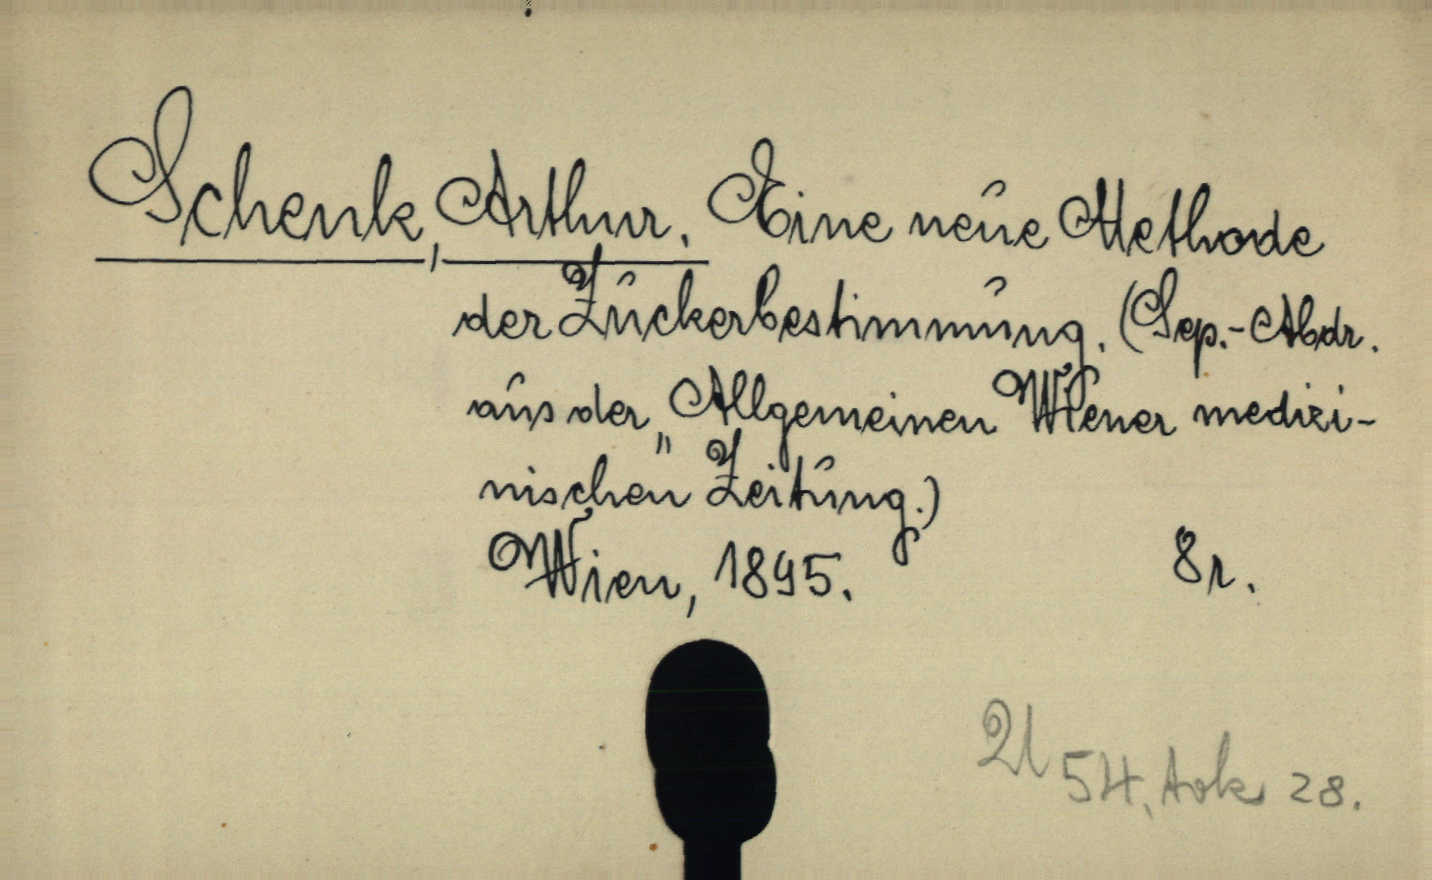 Schenk, Arthur. Eine neue Methode
der Zuckerbestimmung. (Sep.-Abdr.
aus der „Allgemeinen Wiener medizi-
nischen Zeitung.)
Wien, 1895. 8r.
54, tok 28.